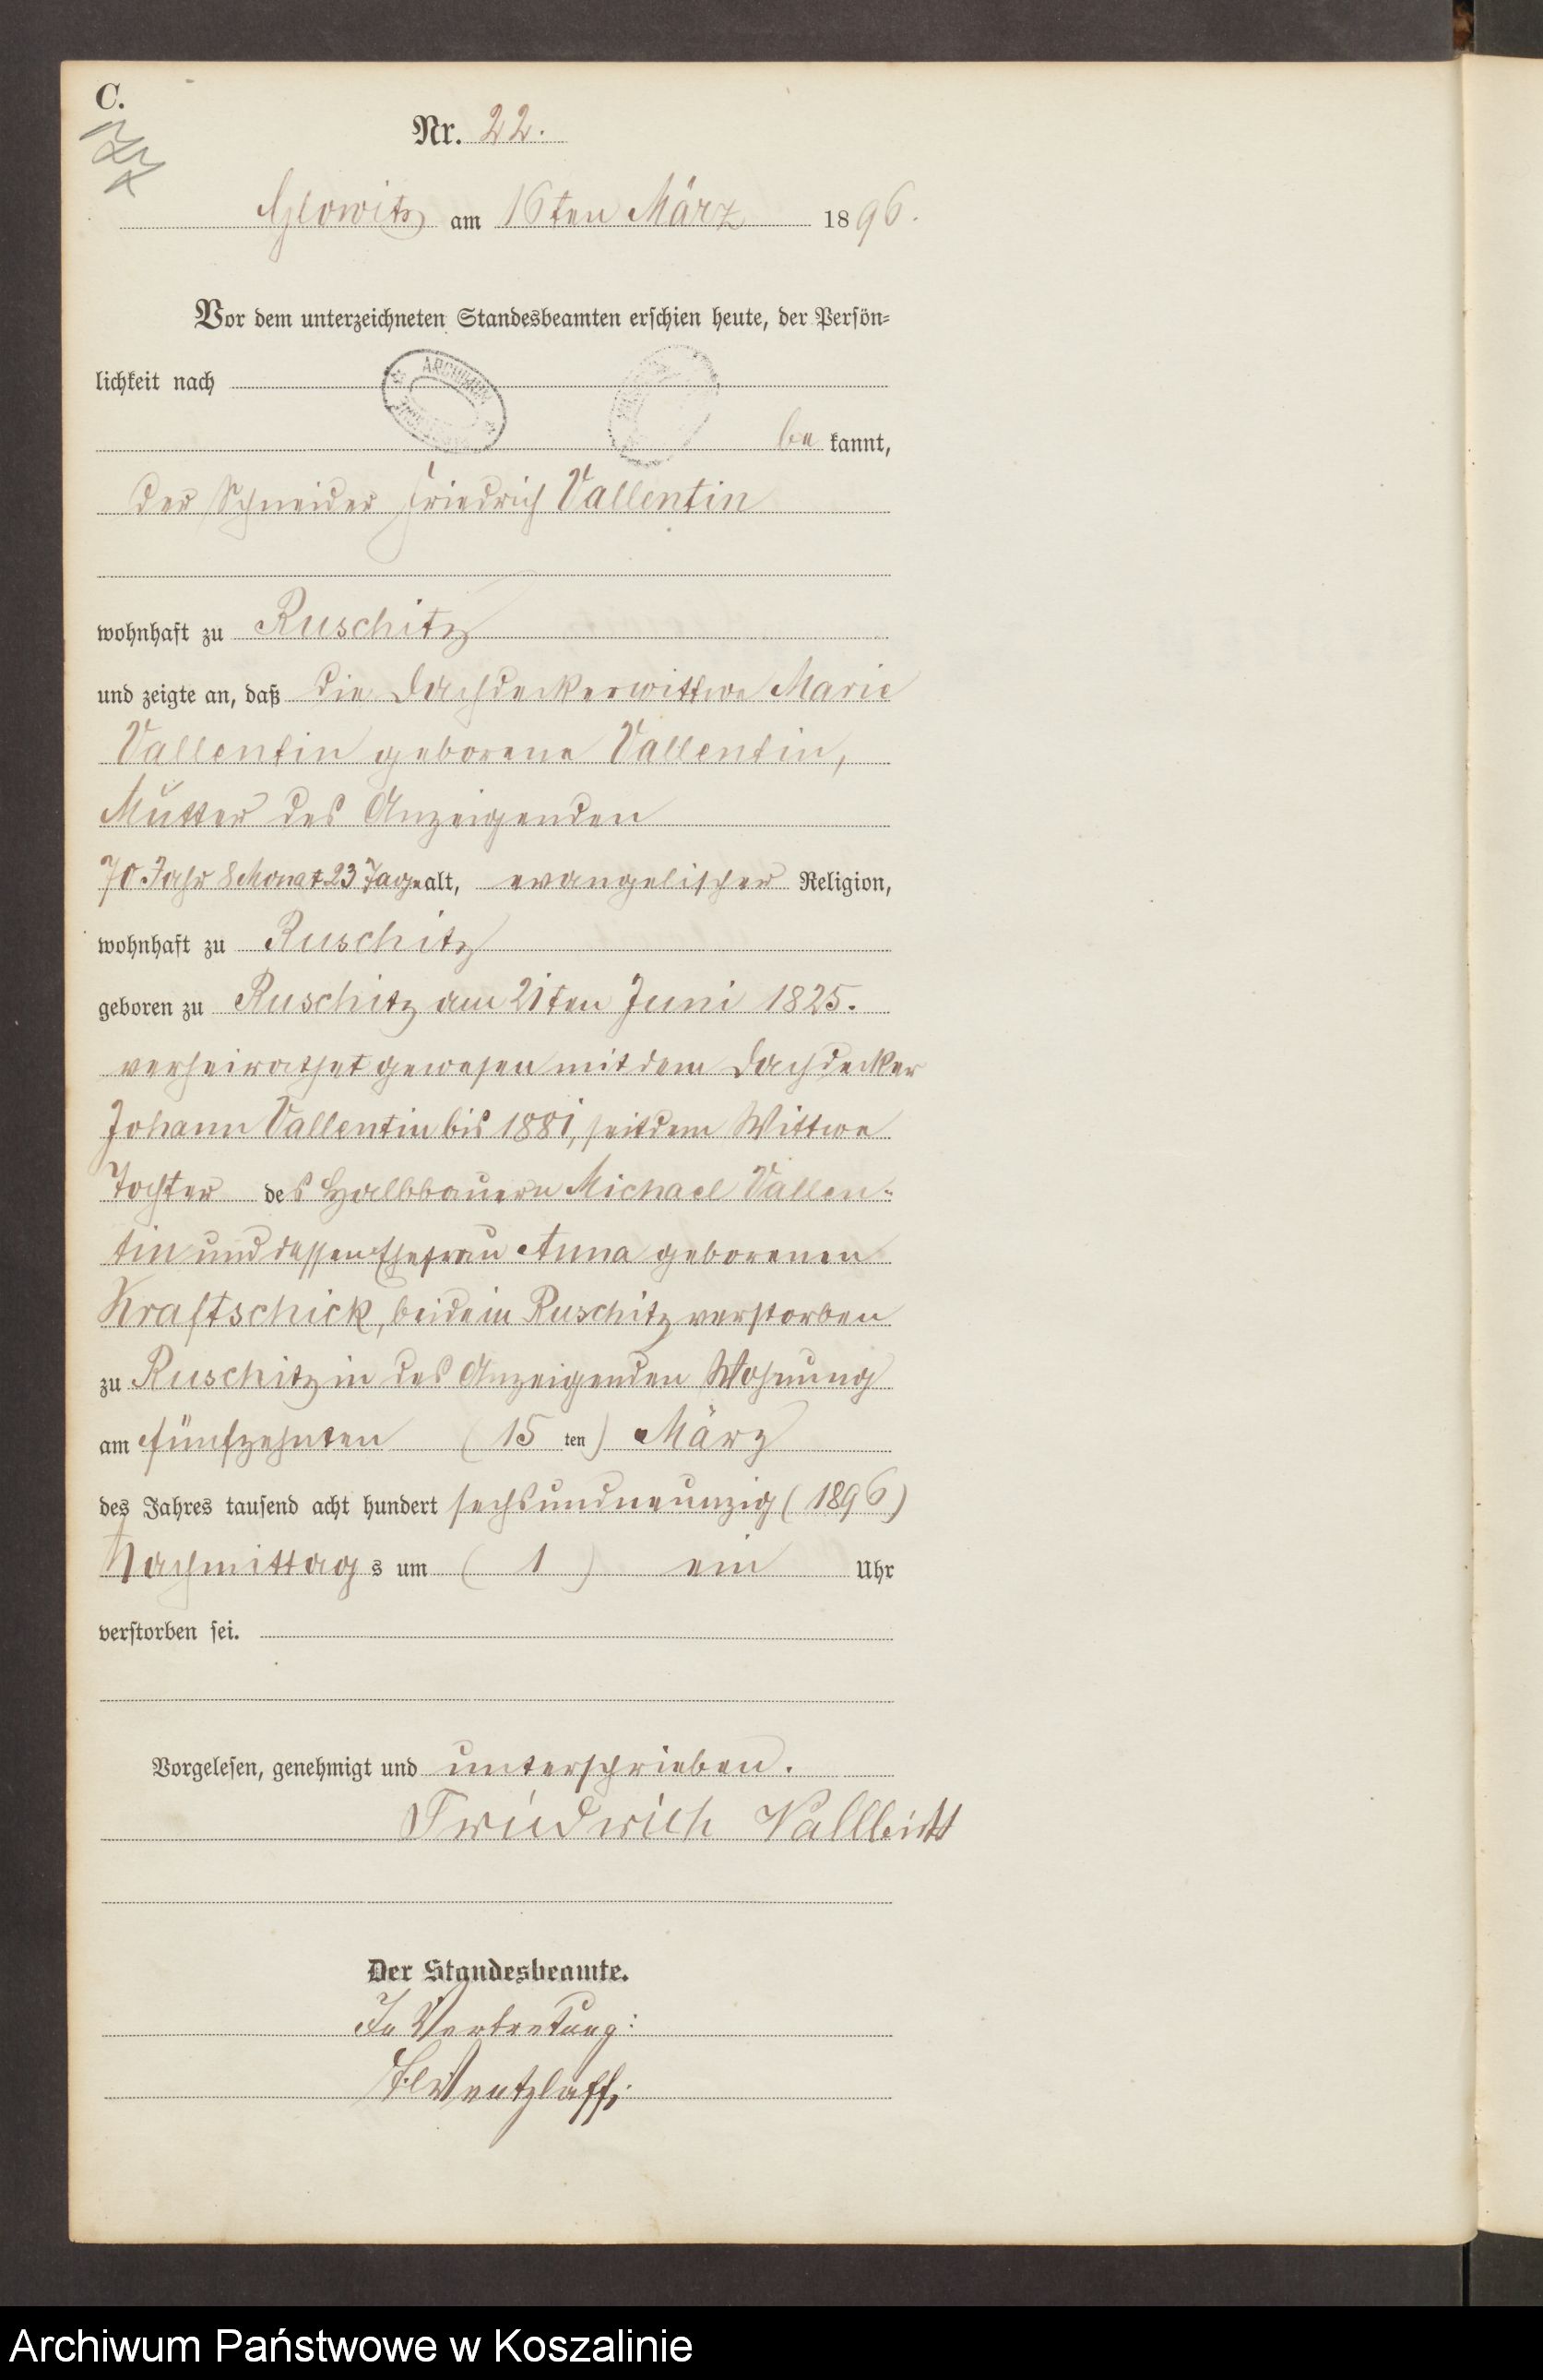 C.
Nr. 22.
Glowitz am 16ten März 1896.
Vor dem unterzeichneten Standesbeamten erschien heute, der Persön-
lichkeit nach
ARCHIWUM
be kannt,
der Schneider Friedrich Vallentin
wohnhaft zu Ruschitz
und zeigte an, daß die Dachdeckerwittwe Marie
Vallentin geborene Vallentin,
Mutter des Anzeigenden
70 Jahr 8 Monat 23 Tage alt, evangelischer Religion,
wohnhaft zu Ruschitz
geboren zu Ruschitz am 21ten Juni 1825.
verheirathet gewesen mit dem Dachdecker
Johann Vallentin bis 1881, seitdem Wittwe
Tochter des Halbbauern Michael Vallen-
tin und dessen Ehefrau Anna geborenen
Kraftschick, beide in Ruschitz verstorben
zu Ruschitz in des Anzeigenden Wohnung
am fünfzehnten (15 ten) März
des Jahres tausend acht hundert sechsundneunzig (1896)
Nachmittag s um (1) ein Uhr
verstorben sei.
Vorgelesen, genehmigt und unterschrieben.
Friedrich
Der Standesbeamte.
In Vertretung:
Wentzlaff.
Archiwum Państwowe w Koszalinie